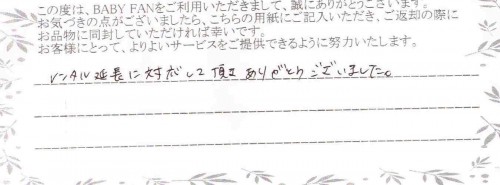 この度は、BABY FANをご利用いただきまして、誠にありがとうございます。
お気づきの点がございましたら、こちらの用紙にご記入いただき、ご返却の際に
お品物に同封していただければ幸いです。
お客様にとって、よりよいサービスをご提供できるように努力いたします。
レンタル延長に対応して頂き ありがとうございました。